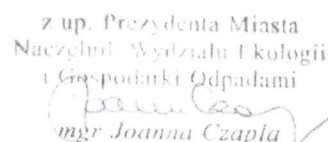 z up. Prezydenta Miasta
Naczelnik Wydziału Ekologii
i Gospodarki Odpadami
mgr Joanna Czapla